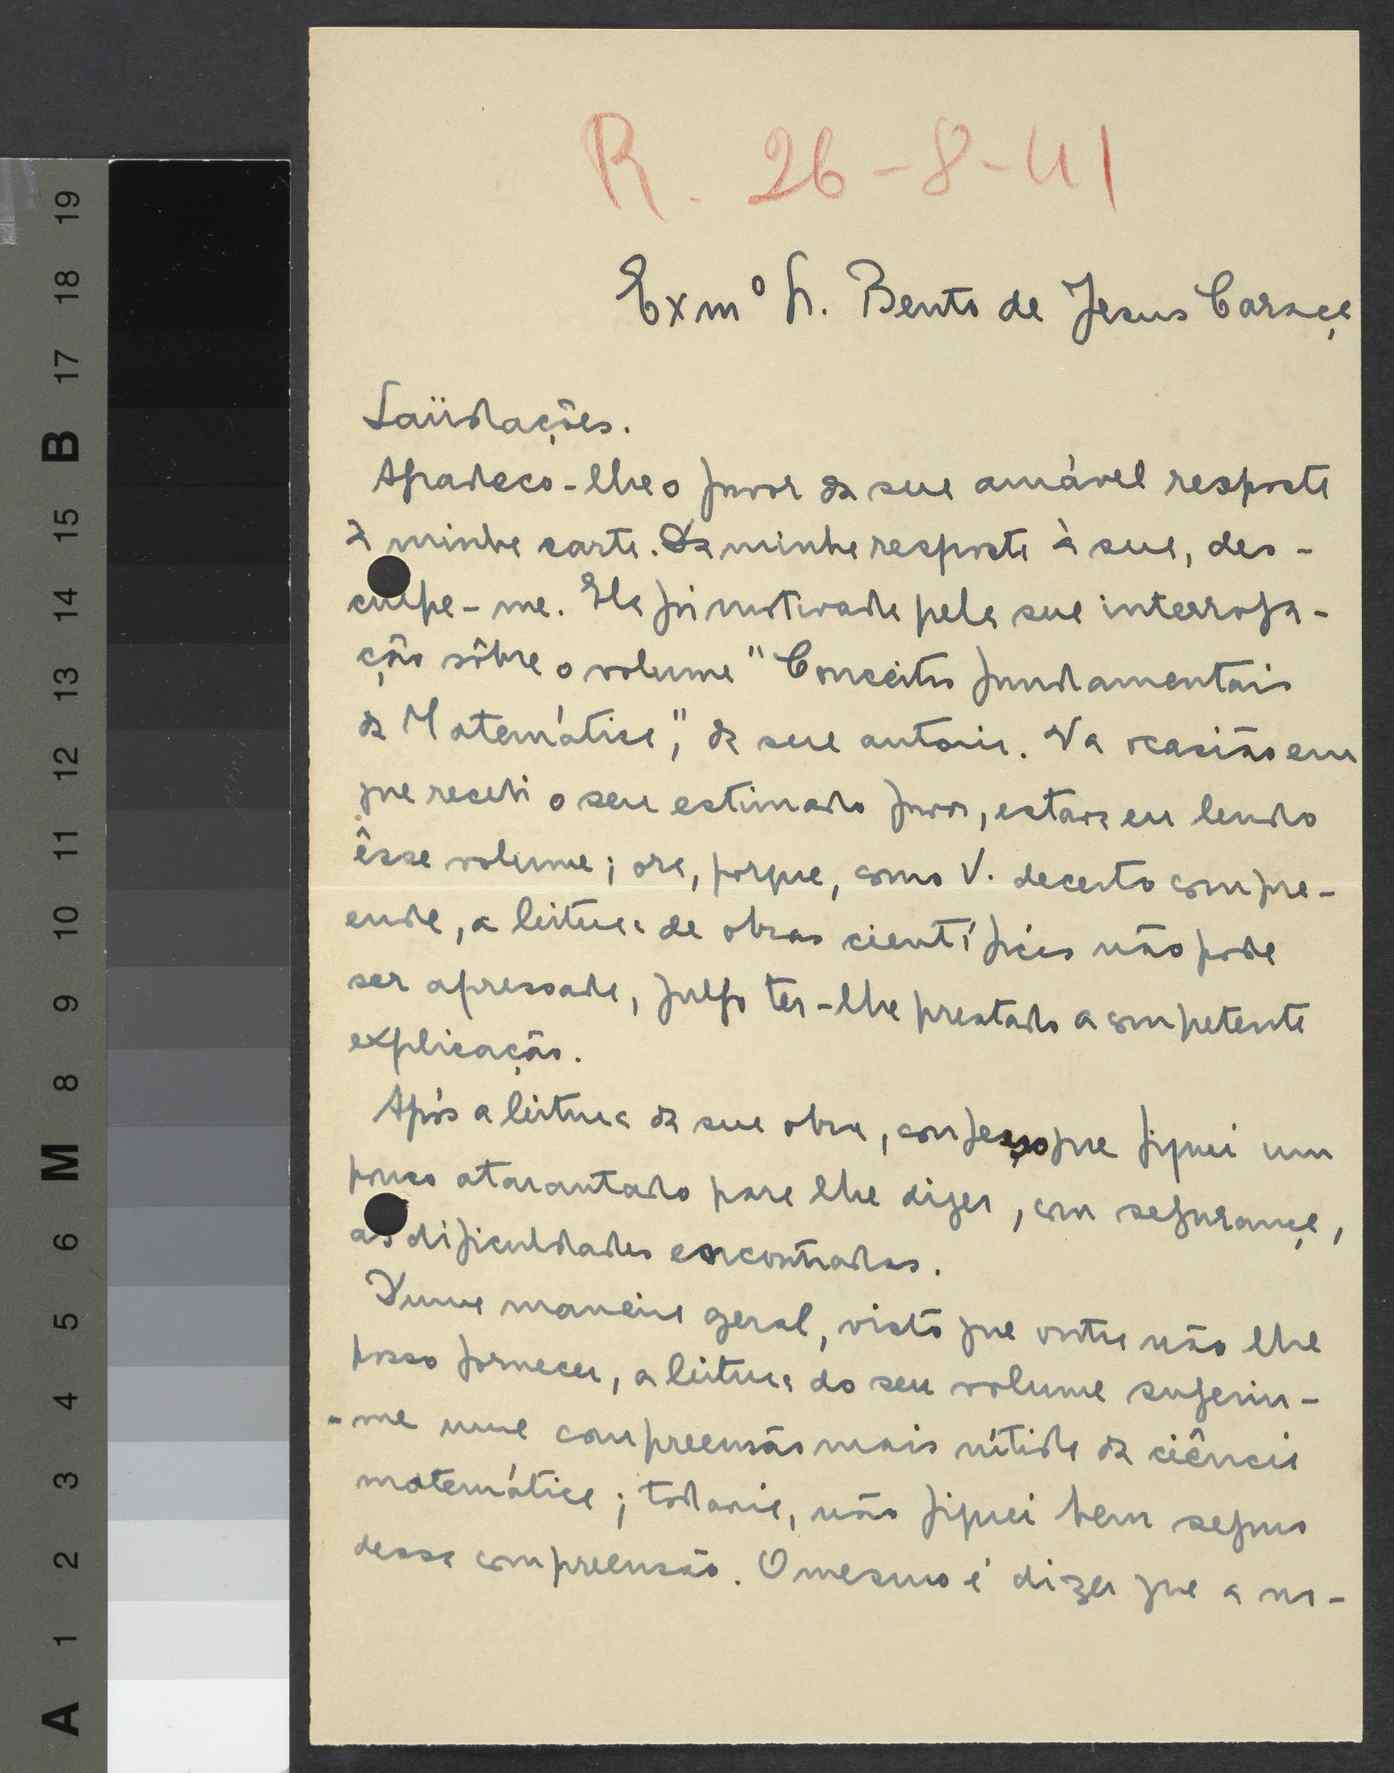 R. 26-8-41
Exmº Sr. Bento de Jesus Caraça
Saüdações.
Agradeço-lhe o favor da sua amável resposta
à minha carta. Da minha resposta à sua, des-
culpe-me. Ela foi motivada pela sua interroga-
ção sôbre o volume "Conceitos fundamentais
da Matemática", da sua autoria. Na ocasião em
que recebi o seu estimado favor, estava eu lendo
êsse volume; ora, porque, como V. decerto compre-
ende, a leitura de obras científicas não pode
ser apressada, julgo ter-lhe prestado a competente
explicação.
Após a leitura da sua obra, confesso que fiquei um
pouco atarantado para lhe dizer, com segurança,
as dificuldades encontradas.
Duma maneira geral, visto que outra não lhe
posso fornecer, a leitura do seu volume sugeriu-
-me uma compreensão mais nítida da ciência
matemática; todavia, não fiquei bem seguro
dessa compreensão. O mesmo é dizer que a no-
A 1 2 3 4 5 6 M 8 9 10 11 12 13 14 15 B 17 18 19